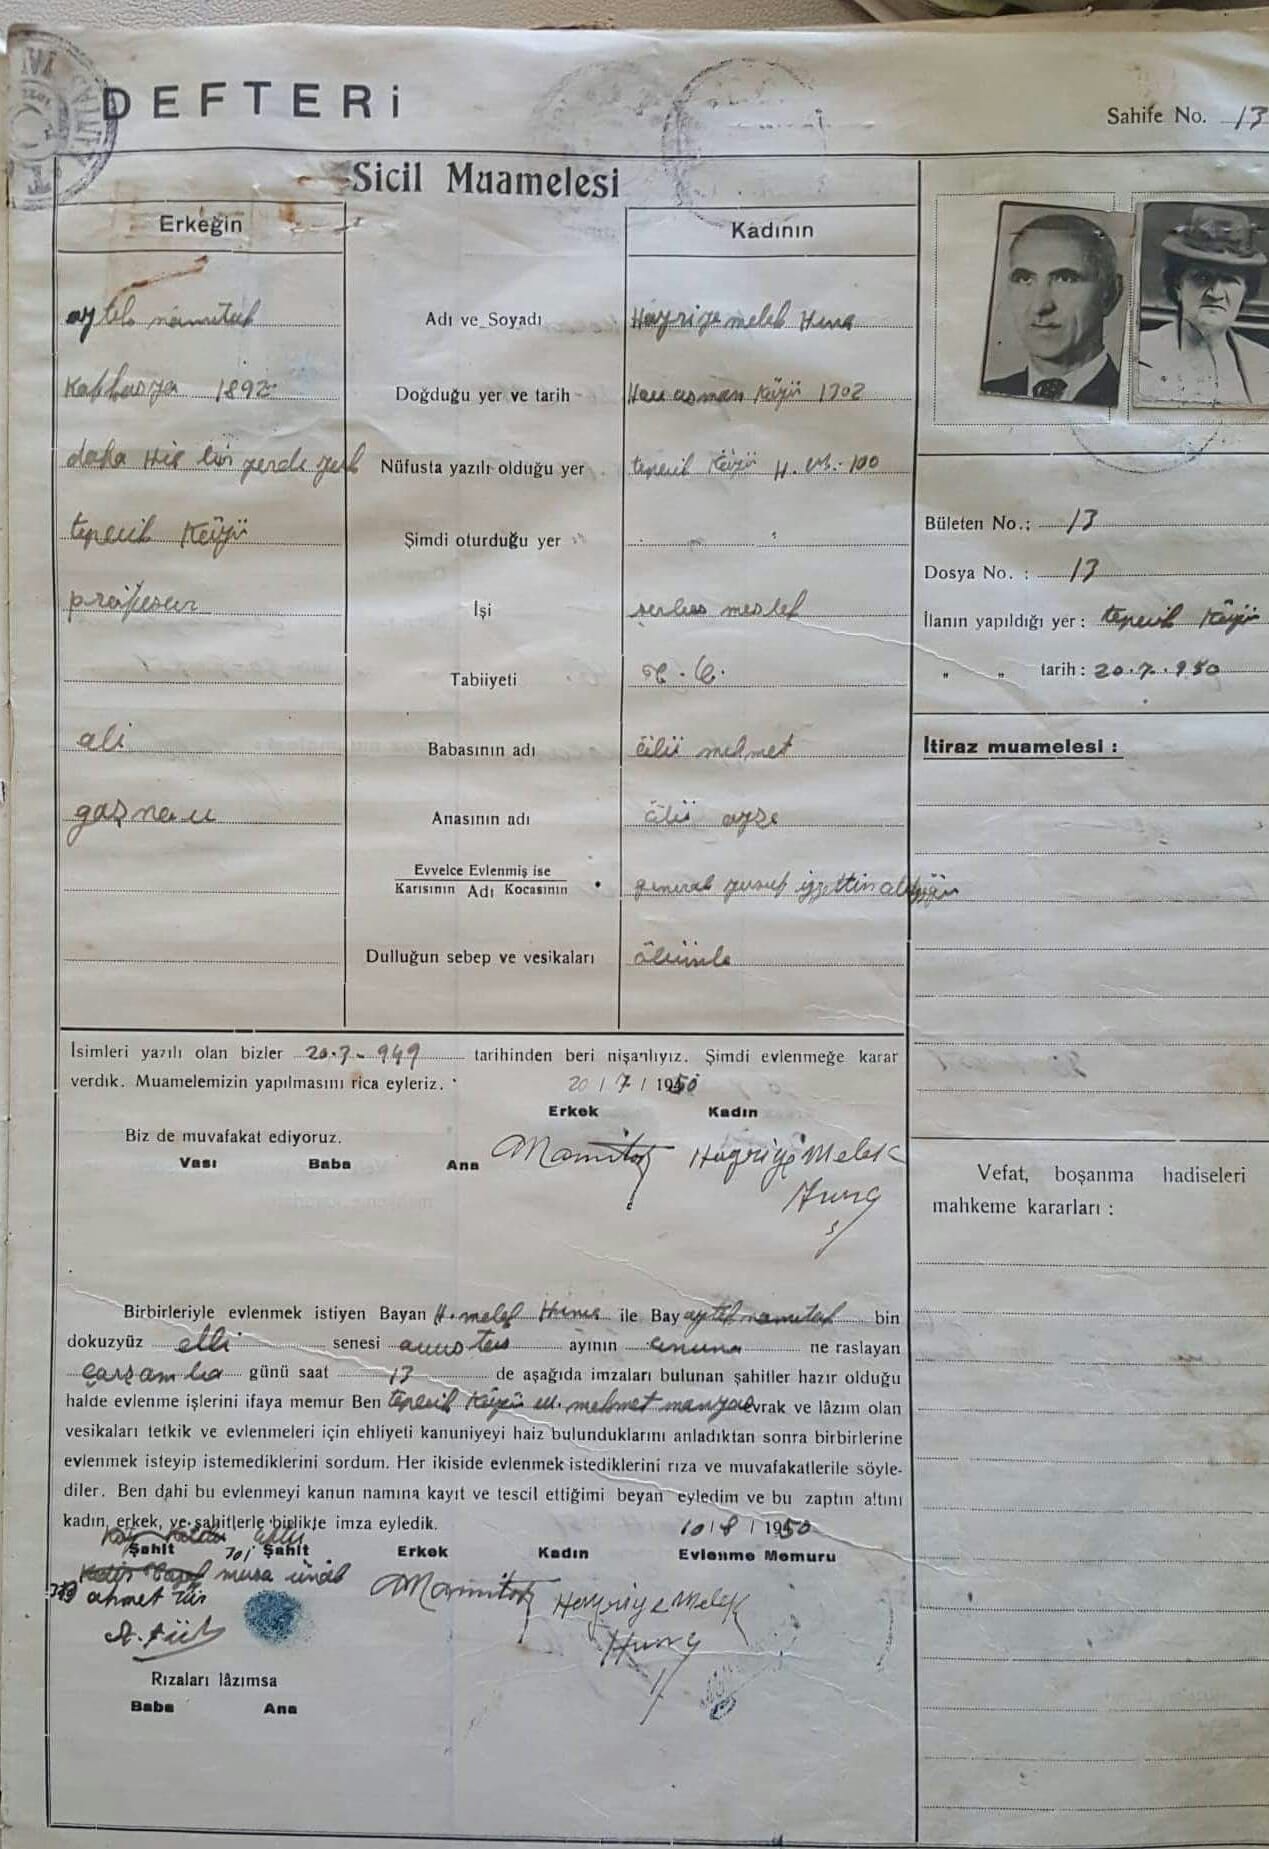 DEFTERi
Sahife No. 13
Sicil Muamelesi
Erkeğin
Kadının
aytek namitok
Adı ve Soyadı
Hayriye melek Hunç
1892
Doğduğu yer ve tarih
osman Köyü 1302
daha Hiç bir yerde
Nüfusta yazılı olduğu yer
tepecik Köyü H. 100
tepecik Köyü
Şimdi oturduğu yer
" " "
İşi
serbes meslek
Tabiiyeti
T. C.
ali
Babasının adı
ölü mehmet
Anasının adı
ölü ayşe
Evvelce Evlenmiş ise
Karısının Adı Kocasının
general yusuf izzettin
Dulluğun sebep ve vesikaları
ölümle
Bületen No.: 13
Dosya No. : 13
İlanın yapıldığı yer : tepecik Köyü
" " tarih : 20.7.950
İtiraz muamelesi :
İsimleri yazılı olan bizler 20.7.949 tarihinden beri nişanlıyız. Şimdi evlenmeğe karar
verdik. Muamelemizin yapılmasını rica eyleriz. 20 / 7 / 1950
Erkek Kadın
Biz de muvafakat ediyoruz.
Vası Baba Ana
Namitok Hayriye Melek
Hunç
Vefat, boşanma hadiseleri
mahkeme kararları :
Birbirleriyle evlenmek istiyen Bayan H. melek Hunç ile Bay aytek namitok bin
dokuzyüz elli senesi ayının onuna ne raslayan
çarşamba günü saat 13 de aşağıda imzaları bulunan şahitler hazır olduğu
halde evlenme işlerini ifaya memur Ben tepecik Köyü mehmet evrak ve lâzım olan
vesikaları tetkik ve evlenmeleri için ehliyeti kanuniyeyi haiz bulunduklarını anladıktan sonra birbirlerine
evlenmek isteyip istemediklerini sordum. Her ikiside evlenmek istediklerini rıza ve muvafakatlerile söyle-
diler. Ben dahi bu evlenmeyi kanun namına kayıt ve tescil ettiğimi beyan eyledim ve bu zaptın altını
kadın, erkek, ve şahitlerle birlikte imza eyledik. 10 / 8 / 1950
Şahit Şahit Erkek Kadın Evlenme Memuru
musa ünal
ahmet
Namitok Hayriye Melek
Hunç
Rızaları lâzımsa
Baba Ana